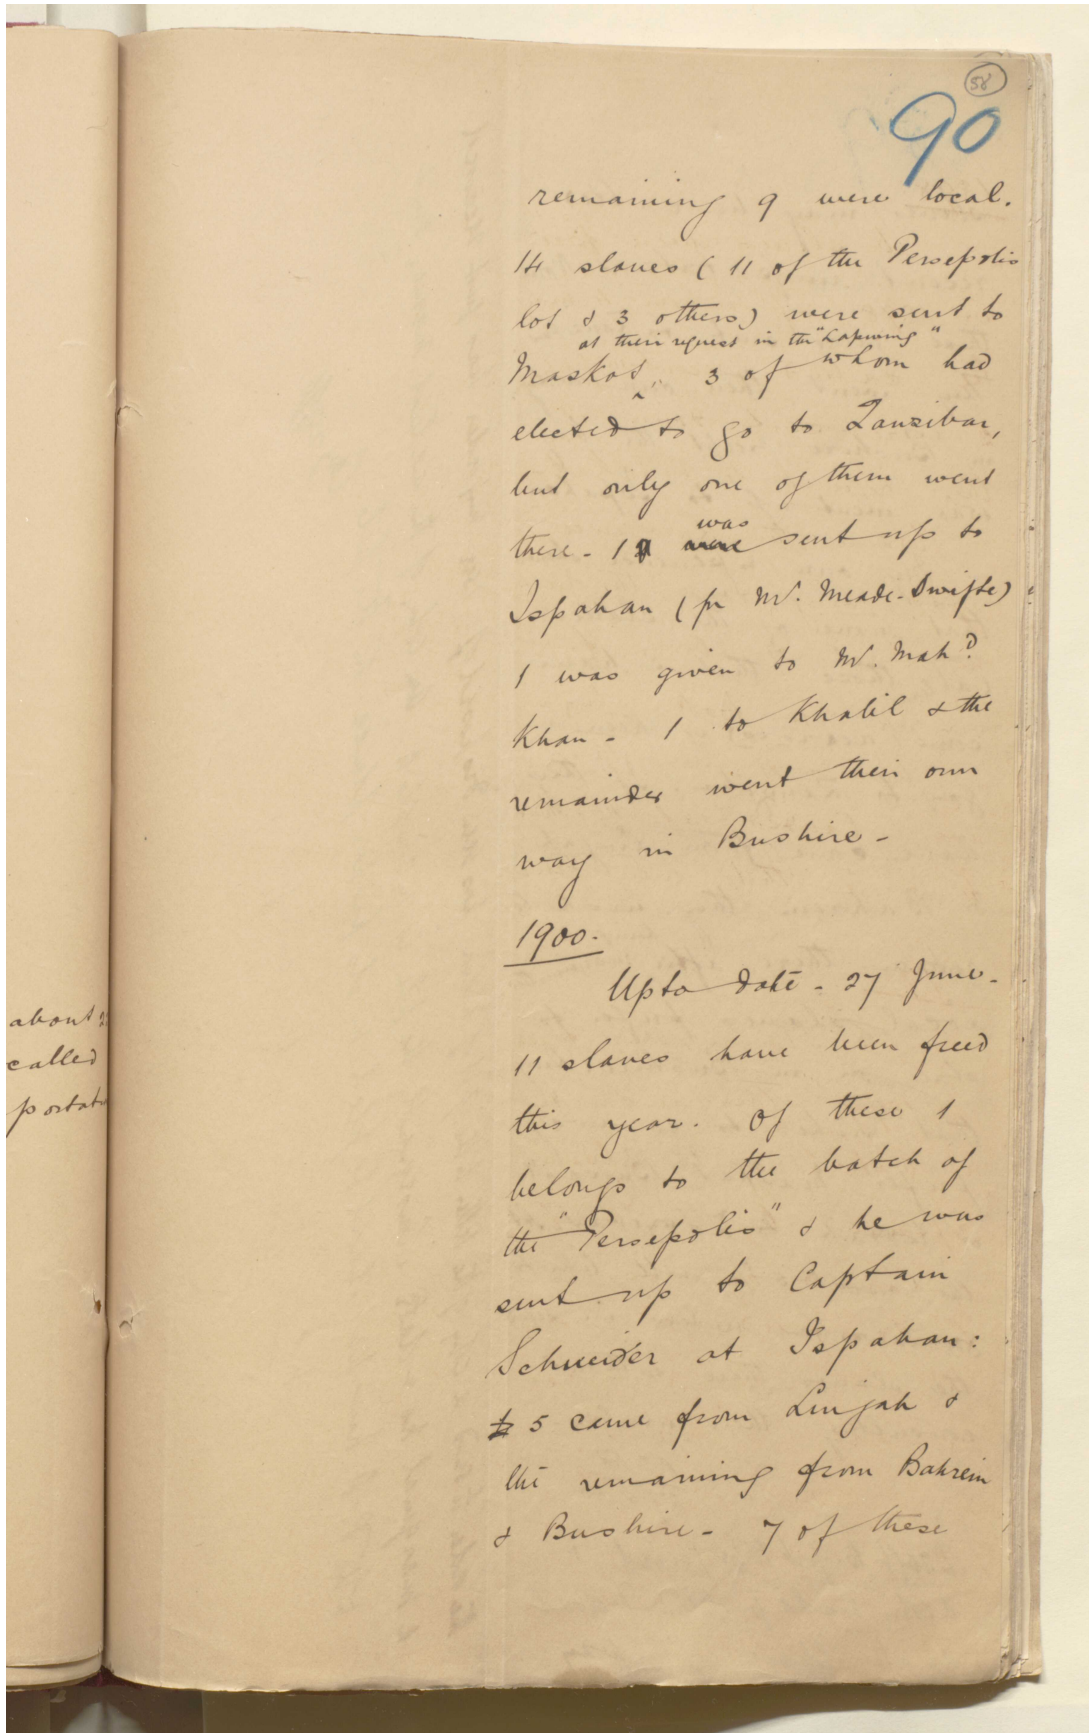 58
90
remaining 9 were local.
14 slaves (11 of the Persepolis
lot & 3 others) were sent to
at their request in the "Lapwing"
Maskat, 3 of whom had
elected to go to Zanzibar,
but only one of them went
there - 1 was sent up to
Ispahan (for Mr. Meade-Swifte)
1 was given to Mr. Mahd.
Khan - 1 to Khalil & the
remainder went their own
way in Bushire -
1900.
Up to date - 27 June -
11 slaves have been freed
this year. Of these 1
belongs to the batch of
the "Persepolis" & he was
sent up to Captain
Schneider at Ispahan:
5 came from Linjah &
the remaining from Bahrein
& Bushire - 7 of these
about
called